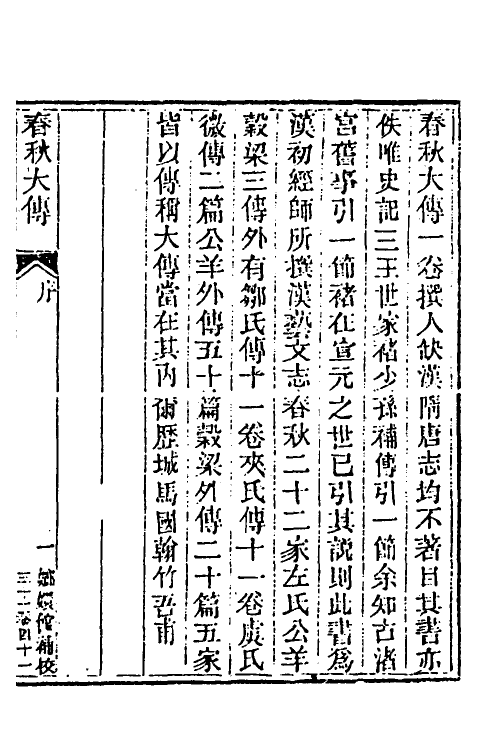 春秋大傳一卷撰人缺漢隋唐志均不著目其書亦
佚唯史記三王世家褚少孫補傳引一節余知古渚
宮舊事引一節褚在宣元之世已引其說則此書爲
漢初經師所撰漢藝文志春秋二十二家左氏公羊
穀梁三傳外有鄒氏傳十一卷夾氏傳十一卷虞氏
微傳二篇公羊外傳五十篇穀梁外傳二十篇五家
皆以傳稱大傳當在其內爾歷城馬國翰竹吾甫
春秋大傳
序
一
嫏嬛館補校
三十二卷四十二